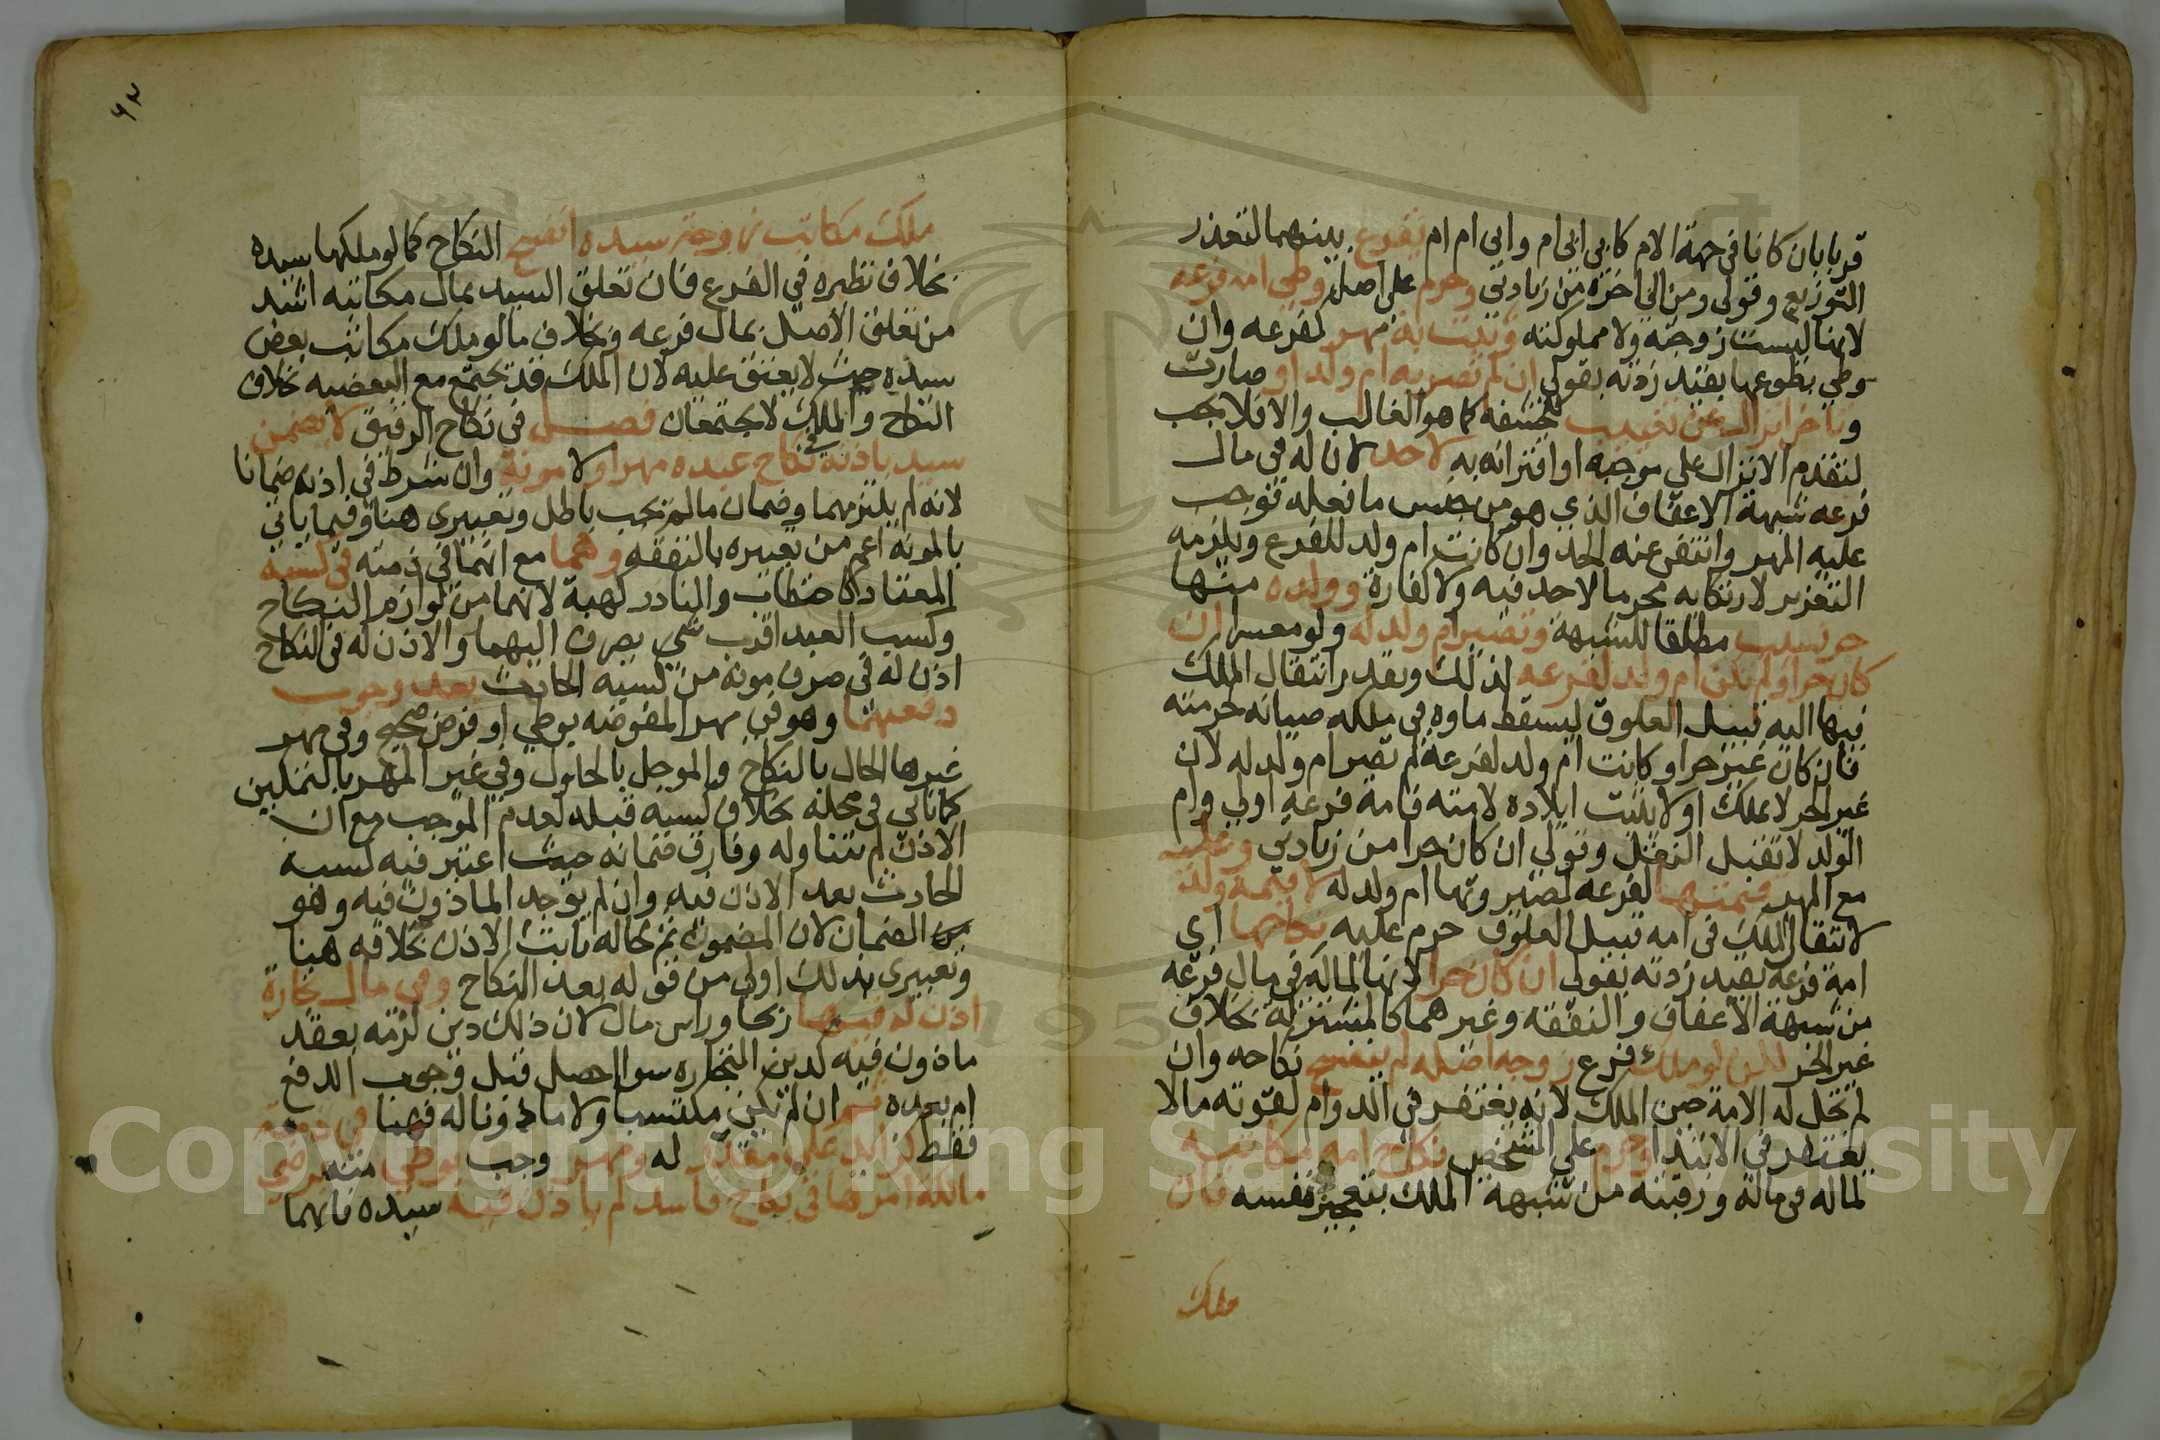 قربا بان كانا في جهة الام كابي ابي ام وابي ام ام يقرع بينهما لتعذر
التوزيع وقولي ومن الى اخره من زيادتي وحرم على اصل وطي امة فرعه
لانها ليست زوجته ولا مملوكته وثبت به مهر لفرعه وان
وطي بطوعها بقيد زدته بقولي ان لم تصر به ام ولد او صارت
وتاخر انزال عن تغييب لحشفه كما هو الغالب والا فلا يجب
لتقدم الانزال على موجبه او اقترانه به لا حد لان له في مال
فرعه شبهة الاعفاف الذي هو من جنس ما فعله فوجب
عليه المهر وانتفى عنه الحد وان كانت ام ولد للفرع ويلزمه
التعزير لارتكابه محرما لا حد فيه ولا كفارة وولده منها
حر نسيب مطلقا للشبهة وتصير ام ولد له ولو معسرا ان
كان حرا ولم تكن ام ولد لفرعه لذلك ويقدر انتقال الملك
فيها اليه قبيل العلوق ليسقط ماوه في ملكه صيانة لحرمته
فان كان غير حر او كانت ام ولد لفرعه لم تصر ام ولد له لان
غير الحر لا يملك او لا يثبت ايلاده لامته فامة فرعه اولى وام
الولد لا تقبل النقل وقولي ان كان حرا من زيادتي وعليه
مع المهر قيمتها لفرعه لصيرورتها ام ولد له لا قيمة ولد
لانتقال الملك في امه قبيل العلوق حرم عليه نكاحها اي
امة فرعه بقيد زدته بقولي ان كان حرا لانها لماله في مال فرعه
من شبهة الاعفاف والنفقه وغيرهما كالمشتركة بخلاف
غير الحر لكن لو ملك فرع زوجة اصله لم ينفسخ نكاحه وان
لم تحل له الامة حين الملك لانه يغتفر في الدوام لقوته ما لا
يغتفر في الابتدا وحرم على الشخص نكاح امة مكاتبه
لماله في ماله ورقبته من شبهة الملك بتعجيز نفسه فان
ملك
٩٣
ملك مكاتب زوجة سيده انفسخ النكاح كما لو ملكها سيده
بخلاف نظيره في الفرع فان تعلق السيد بمال مكاتبه اشد
من تعلق الاصل بمال فرعه وبخلاف ما لو ملك مكاتب بعض
سيده حيث لا يعتق عليه لان الملك قد يجتمع مع البعضيه بخلاف
النكاح والملك لا يجتمعان فصل في نكاح الرقيق لا يضمن
سيد باذنه في نكاح عبده مهرا ولا مونة وان شرط في اذنه ضمانا
لانه لم يلتزمهما وضمان ما لم يجب باطل وتعبيري هنا وفيما ياتي
بالمونه اعم من تعبيره بالنفقه وهما مع انهما في ذمته في كسبه
المعتاد كاحتطاب والنادر كهبة لانهما من لوازم النكاح
وكسب العبد اقرب شي يصرف اليهما والاذن له في النكاح
اذن له في صرف مونه من كسبه الحادث بعد وجوب
دفعهما وهو في مهر المفوضه بوطي او فرض صحيح وفي مهر
غيرها الحال بالنكاح والموجل بالحلول وفي غير المهر بالتمكين
كما ياتي في محله بخلاف كسبه قبله لعدم الموجب مع ان
الاذن لم يتناوله وفارق ضمانه حيث اعتبر فيه كسبه
الحادث بعد الاذن فيه وان لم يوجد الماذون فيه وهو
الضمان لان المضمون ثم كاله ثابت الاذن بخلافه هنا
وتعبيري بذلك اولى من قوله بعد النكاح وفي مال تجارة
اذن له فيها ربحا وراس مال لان ذلك دين لزمه بعقد
ماذون فيه كدين التجاره سوا احصل قبل وجوب الدفع
ام بعده ثم ان لم يكن مكتسبا ولا ماذونا له فهما في ذمته
فقط كزايد على مقدر له ومهر وجب بوطي منه برضى
مالكة امرها في نكاح فاسد لم ياذن فيه سيده فانهما